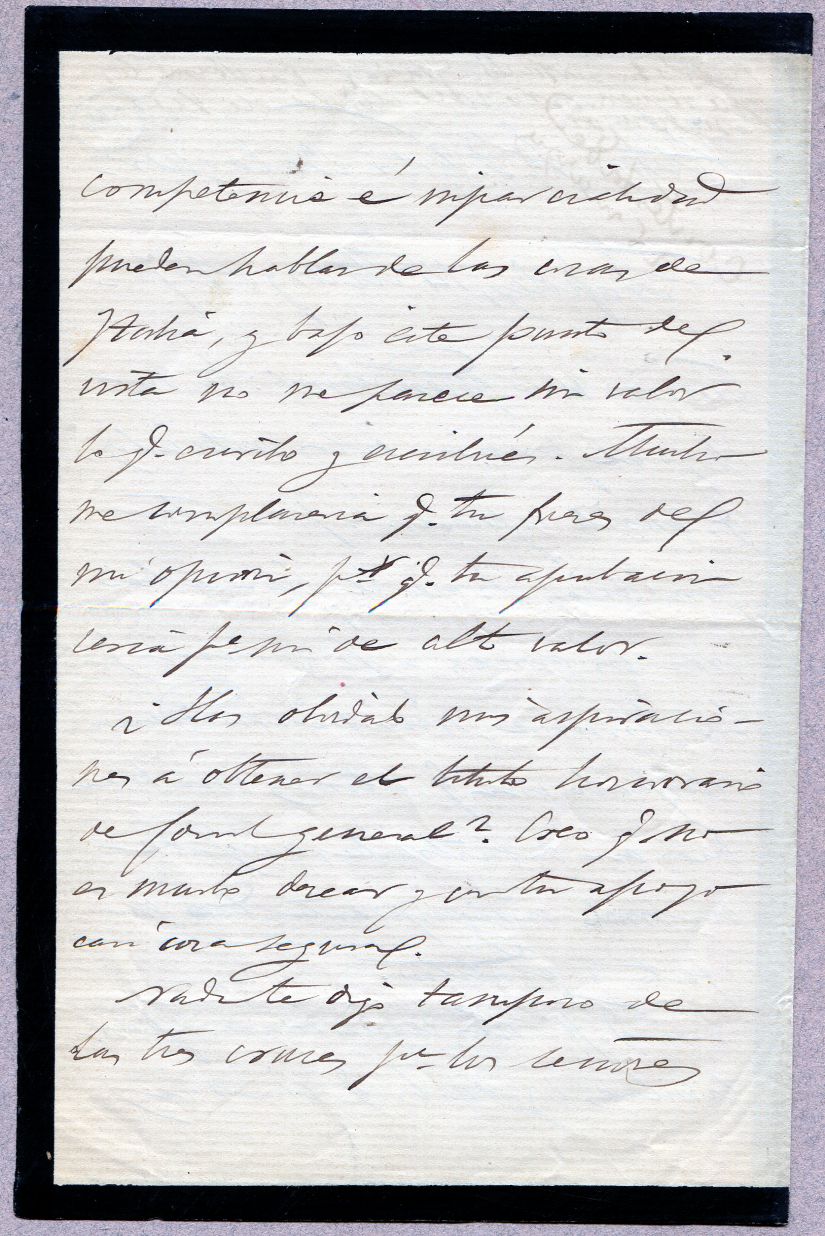 competencia é imparcialidad
pueden hablar de las cosas de
Italia, y bajo este punto de
vista no me parece sin valor
lo q. escrito y escribiré. Mucho
me complaceria q. tu fueses de
mi opinión, q. tu aprobacion
seria pa. mi de alto valor.
¿Has olvidado mis aspiracio-
nes á obtener el titulo honorario
de Consul general? Creo q. no
es mucho desear y con tu apoyo
casi cosa segura.
Nada te digo tampoco de
las tres cruces pa. los señores